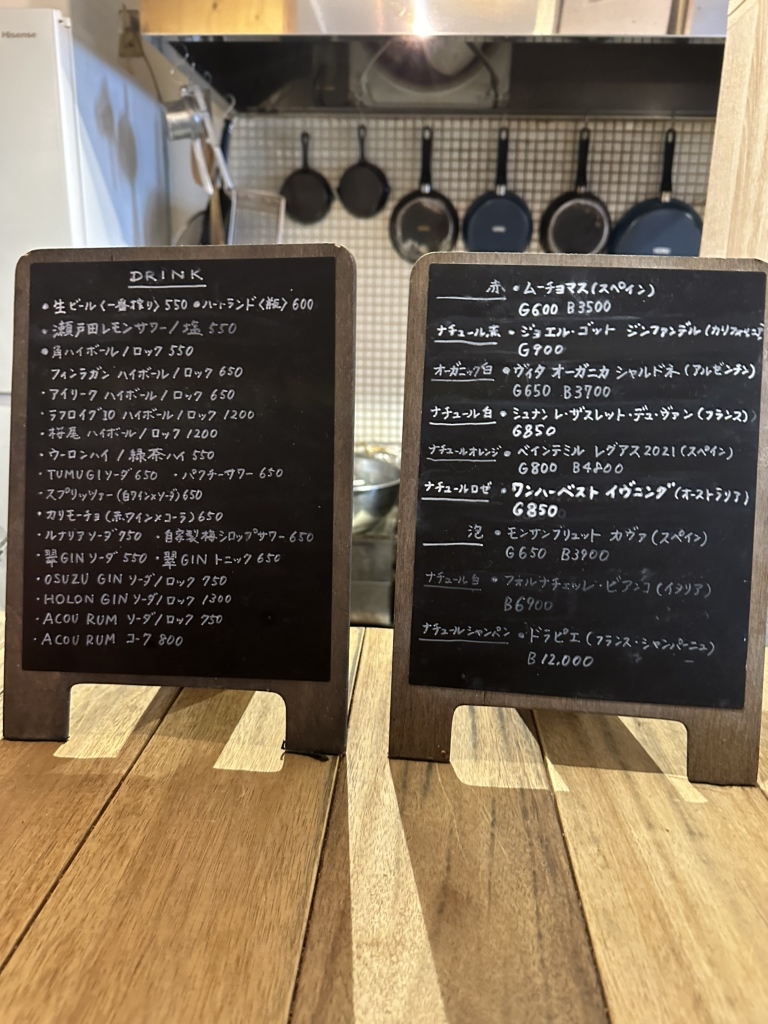 Hisense
DRINK
・生ビール〈一番搾り〉550 ・ハートランド〈瓶〉600
・瀬戸田レモンサワー/塩 550
・角ハイボール/ロック 550
フィンラガン ハイボール/ロック 650
・アイリーク ハイボール/ロック 650
・ラフロイグ10 ハイボール/ロック 1200
・桜尾 ハイボール/ロック 1200
・ウーロンハイ/緑茶ハイ 550
・TUMUGIソーダ 650 ・パクチーサワー 650
・スプリッツァー(白ワイン×ソーダ)650
・カリモーチョ(赤ワイン×コーラ)650
・ルナリアソーダ750 ・自家製梅シロップサワー650
・翠GINソーダ 550 ・翠GINトニック 650
・OSUZU GIN ソーダ/ロック 750
・HOLON GIN ソーダ/ロック 1300
・ACOU RUM ソーダ/ロック 750
・ACOU RUM コーク 800
赤 ・ムーチョマス(スペイン)
G600 B3500
ナチュール赤 ・ジョエル・ゴット ジンファンデル(カリフォルニア)
G900
オーガニック白 ・ヴィタ オーガニカ シャルドネ(アルゼンチン)
G650 B3700
ナチュール白 ・シュナン レ・ザスレット・デュ・ヴァン(フランス)
G850
ナチュールオレンジ ・ベインテミル レグアス2021(スペイン)
G800 B4800
ナチュールロゼ ・ワンハーベスト イヴニング(オーストラリア)
G850
泡 ・モンサンブリュット カヴァ(スペイン)
G650 B3900
ナチュール白 ・フォルナチェッレ・ビアンコ(イタリア)
B6900
ナチュールシャンパン ・ドラピエ(フランス・シャンパーニュ)
B12.000